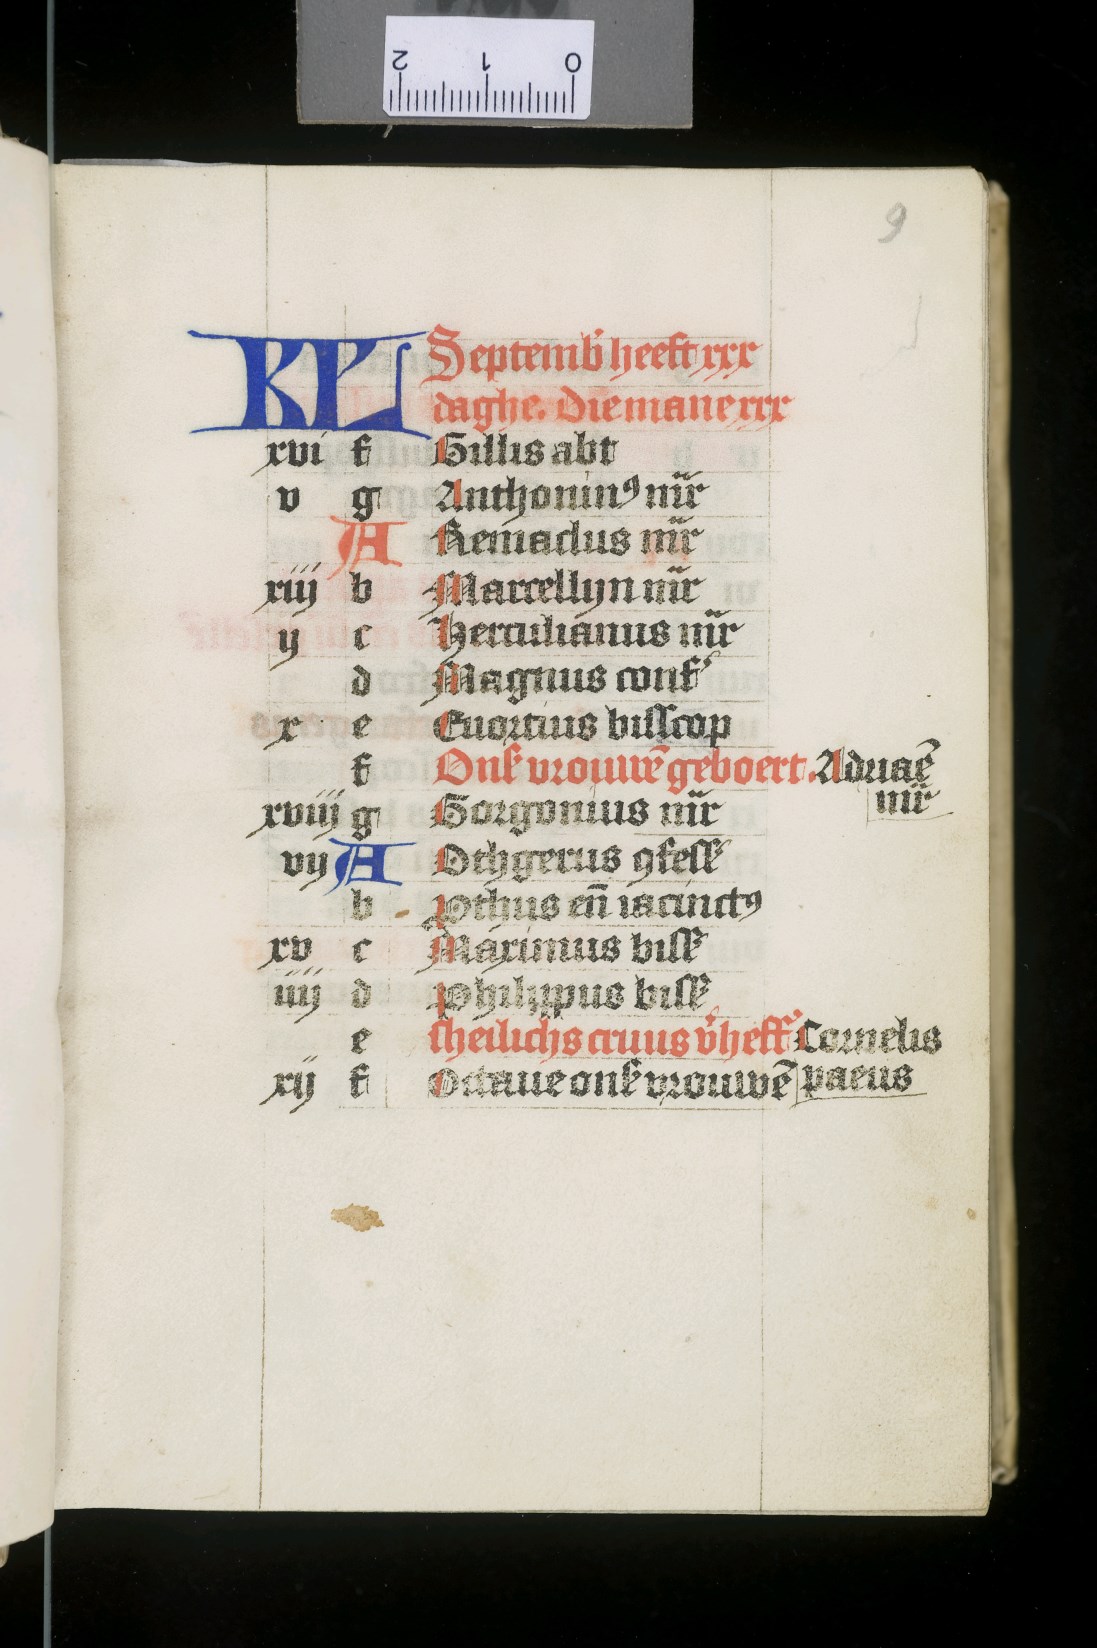 2 1 0
9
KL Septemb̉ heeft xxx
daghe. Die mane xxx
xvi f Gillis abt
v g Anthoninꝰ mr̃
A Remaclus mr̃
xiij b Marcellyn mr̃
ij c Herculianus mr̃
d Magnus conf̓
x e Euortius bisscop
f Ons̓ vrouwē geboert. Adriaē
mr̃
xviij g Gorgonius mr̃
vij A Othgerus ꝯfess̓
b Prthus en̄ iacinctꝰ
xv c Maximus biss̓
iiij d Philippus biss̓
e sheilichs cruus v̉heff̓ Cornelis
xij f Octaue ons̓ vrouwē paeus